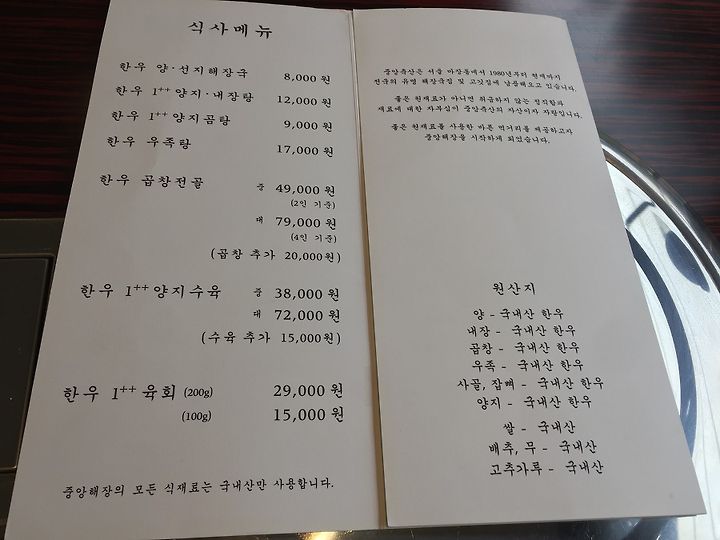 식사메뉴
한우 양·선지해장국 8,000 원
한우 1++ 양지·내장탕 12,000 원
한우 1++ 양지곰탕 9,000 원
한우 우족탕 17,000 원
한우 곱창전골 중 49,000 원
(2인 기준)
대 79,000 원
(4인 기준)
(곱창 추가 20,000원)
한우 1++양지수육 중 38,000 원
대 72,000 원
(수육 추가 15,000원)
한우 1++ 육회 (200g) 29,000 원
(100g) 15,000 원
중앙해장의 모든 식재료는 국내산만 사용합니다.
중앙축산은 서울 마장동에서 1980년부터 현재까지
전국의 유명 해장국집 및 고깃집에 납품해오고 있습니다.
좋은 원재료가 아니면 취급하지 않는 정직함과
재료에 대한 자부심이 중앙축산의 자산이자 자랑입니다.
좋은 원재료를 사용한 바른 먹거리를 제공하고자
중앙해장을 시작하게 되었습니다.
원산지
양 - 국내산 한우
내장 - 국내산 한우
곱창 - 국내산 한우
우족 - 국내산 한우
사골, 잡뼈 - 국내산 한우
양지 - 국내산 한우
쌀 - 국내산
배추, 무 - 국내산
고추가루 - 국내산